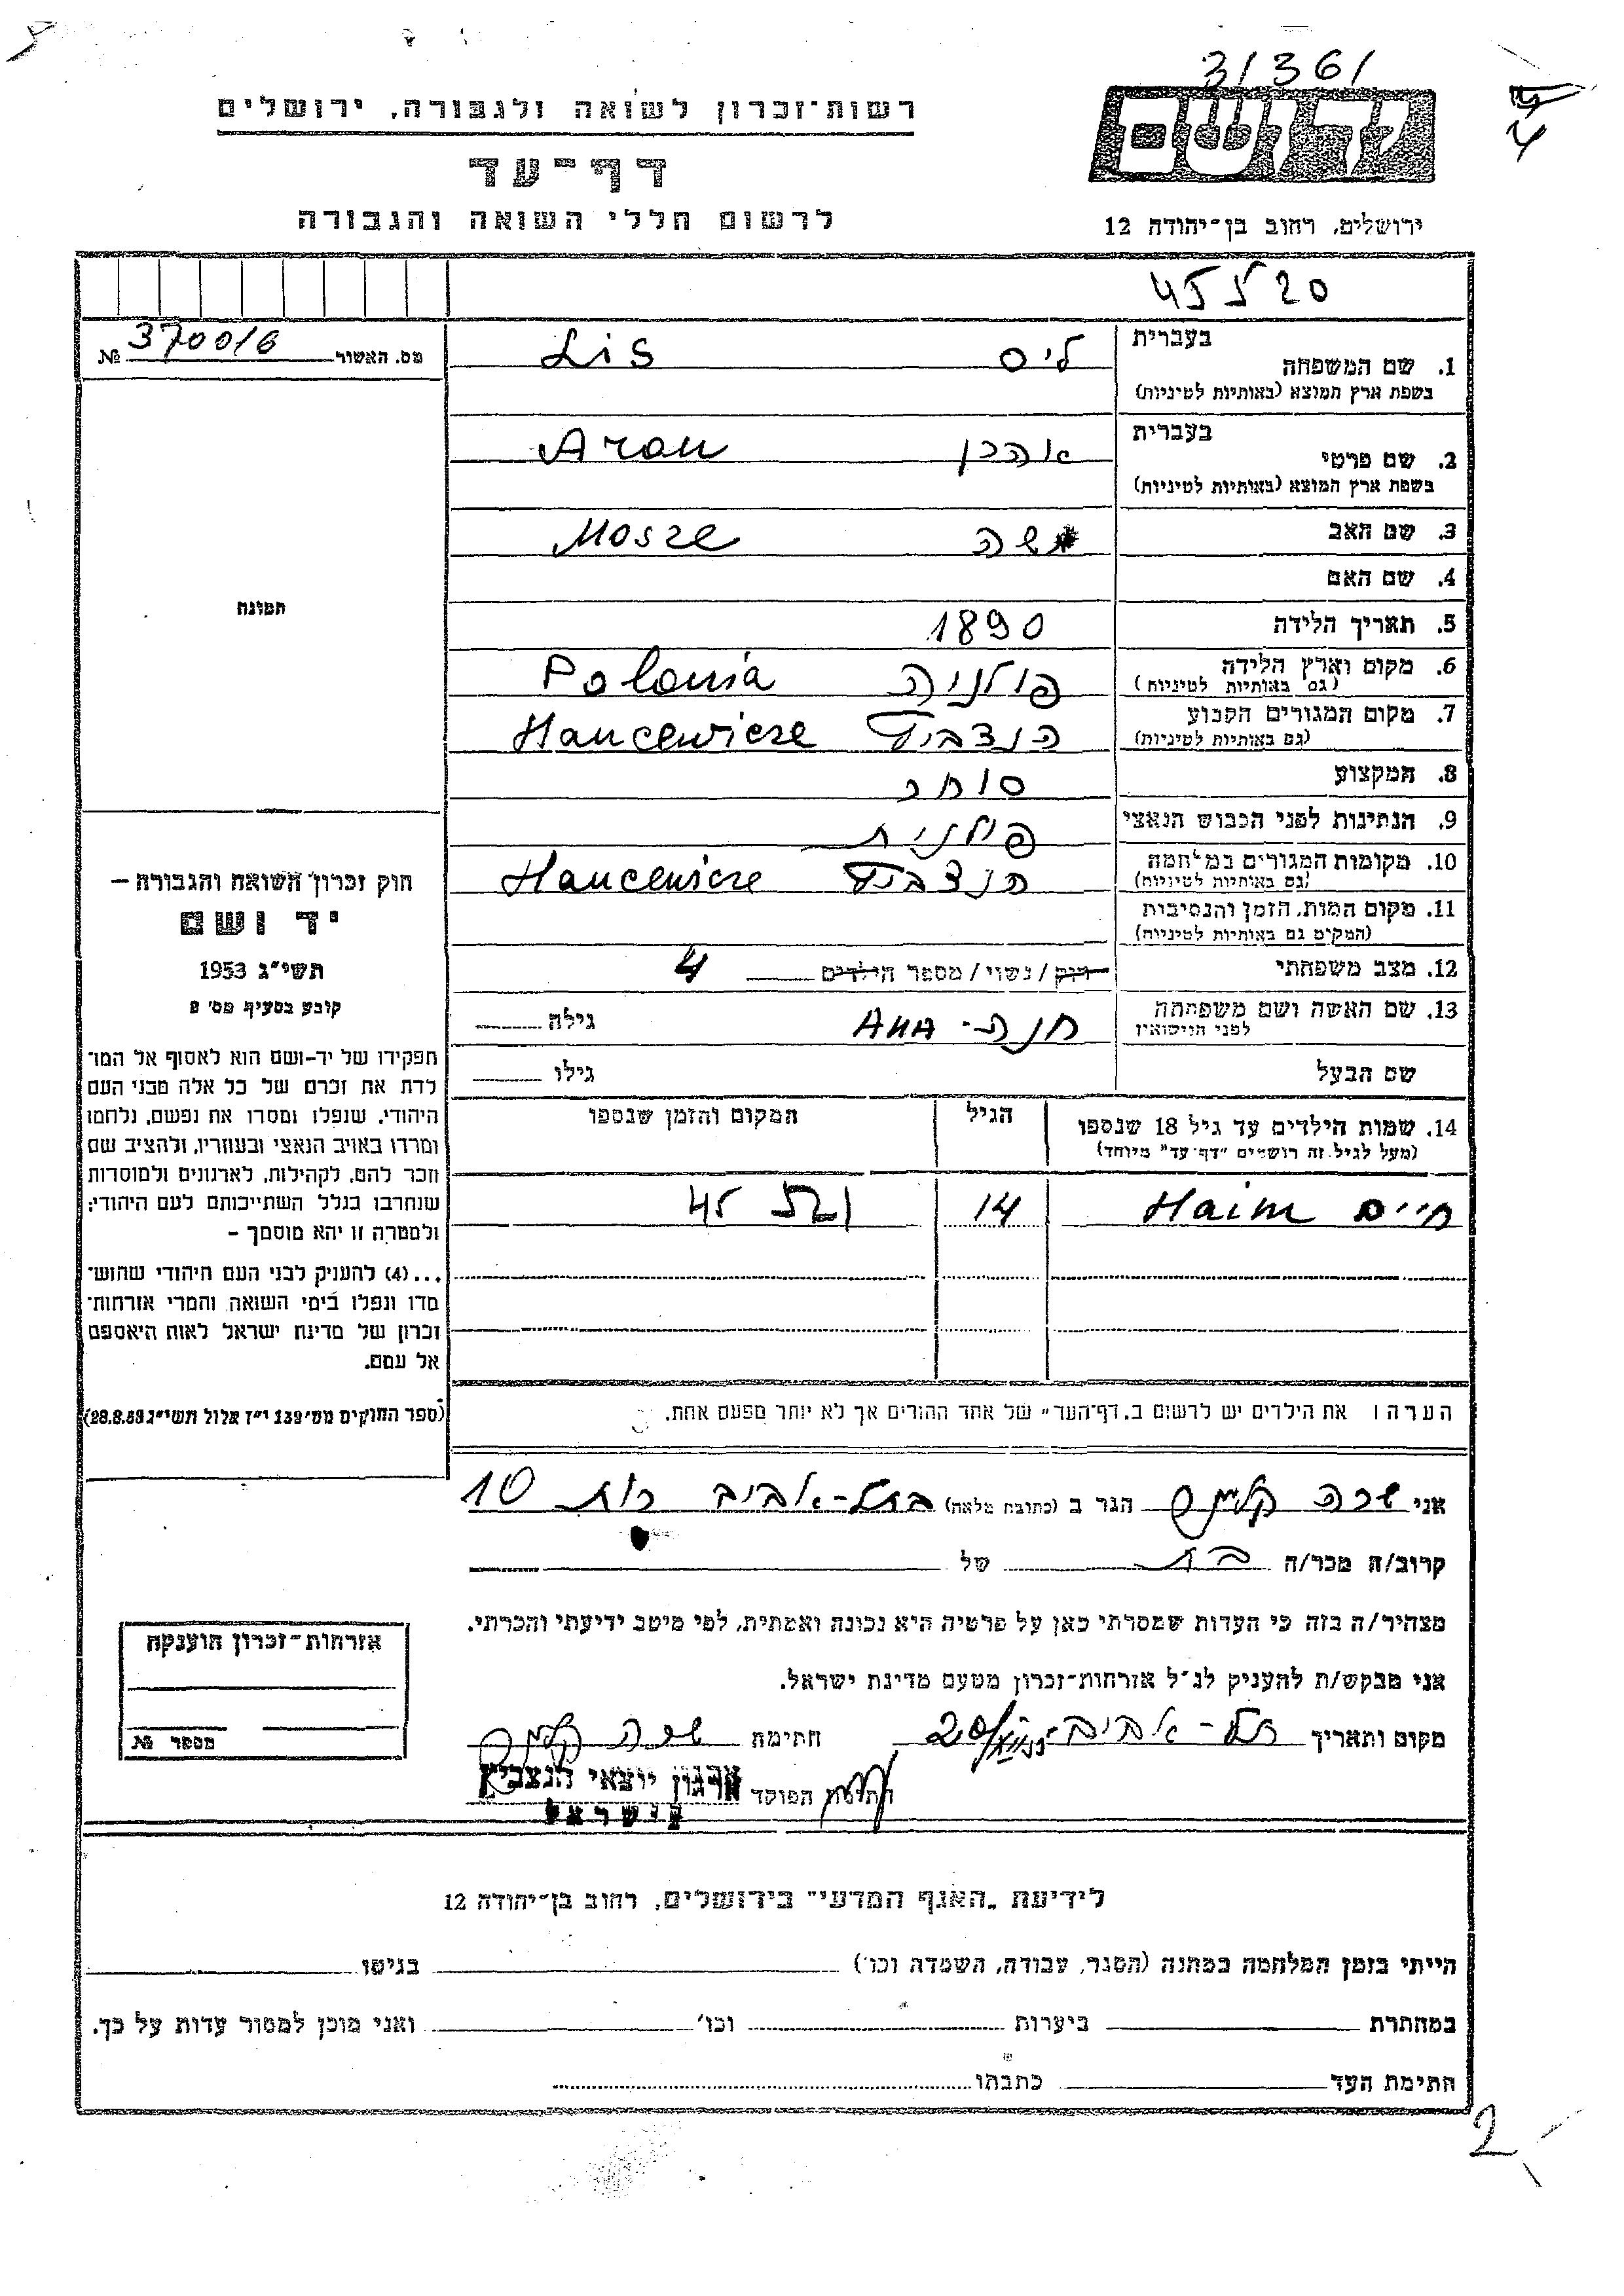 3/361
רשות-זכרון לשואה ולגבורה, ירושלים
דף-עד
לרשום חללי השואה והגבורה
ירושלים, רחוב בן-יהודה 12
מס. האשור 37００/6 №
1. שם המשפחה בעברית ליס Lis
בשפת ארץ המוצא (באותיות לטיניות)
2. שם פרטי בעברית אהרן Aron
בשפת ארץ המוצא (באותיות לטיניות)
3. שם האב משה Mosze
4. שם האם
5. תאריך הלידה 1890
6. מקום וארץ הלידה פולניה Polonia
(גם באותיות לטיניות)
7. מקום המגורים הקבוע הנצביץ Hancewicze
(גם באותיות לטיניות)
8. המקצוע סוחר
9. הנתינות לפני הכבוש הנאצי פולנית
10. מקומות המגורים במלחמה הנצביץ Hancewicze
(גם באותיות לטיניות)
11. מקום המות, הזמן והנסיבות
(המקום גם באותיות לטיניות)
12. מצב משפחתי רוק / נשוי / מספר הילדים 4
13. שם האשה ושם משפחתה חנה - Ana גילה
לפני הנישואין
שם הבעל גילו
14. שמות הילדים עד גיל 18 שנספו הגיל המקום והזמן שנספו
(מעל לגיל זה רושמים "דף-עד" מיוחד)
חיים Haim 14
הערה: את הילדים יש לרשום ב"דף-העד" של אחד ההורים אך לא יותר מפעם אחת.
תמונה
חוק זכרון השואה והגבורה –
יד ושם
תשי"ג 1953
קובע בסעיף מס' 2
תפקידו של יד-ושם הוא לאסוף אל המו-
לדת את זכרם של כל אלה מבני העם
היהודי, שנפלו ומסרו את נפשם, נלחמו
ומרדו באויב הנאצי ובעוזריו, ולהציב שם
וזכר להם, לקהילות, לארגונים ולמוסדות
שנחרבו בגלל השתייכותם לעם היהודי;
ולמטרה זו יהא מוסמך –
...(4) להעניק לבני העם היהודי שהוש-
מדו ונפלו בימי השואה והמרי אזרחות-
זכרון של מדינת ישראל לאות היאספם
אל עמם.
(ספר החוקים מס' 132 י"ז אלול תשי"ג 28.8.53)
אני שרה הגר ב (כתובת מלאה) בתל-אביב רות 10
קרוב/ה מכר/ה בת של
מצהיר/ה בזה כי העדות שמסרתי כאן על פרטיה היא נכונה ואמתית, לפי מיטב ידיעתי והכרתי.
אני מבקש/ת להעניק לנ"ל אזרחות-זכרון מטעם מדינת ישראל.
מקום ותאריך תל-אביב חתימת שרה
חתימת הפוקד ארגון יוצאי הנצביץ
בישראל
אזרחות-זכרון הוענקה
מספר №
לידיעת "האגף המדעי" בירושלים, רחוב בן-יהודה 12
הייתי בזמן המלחמה במחנה (הסגר, עבודה, השמדה וכו') בגיטו
במחתרת ביערות וכו' ואני מוכן למסור עדות על כך.
חתימת העד כתבתו
2